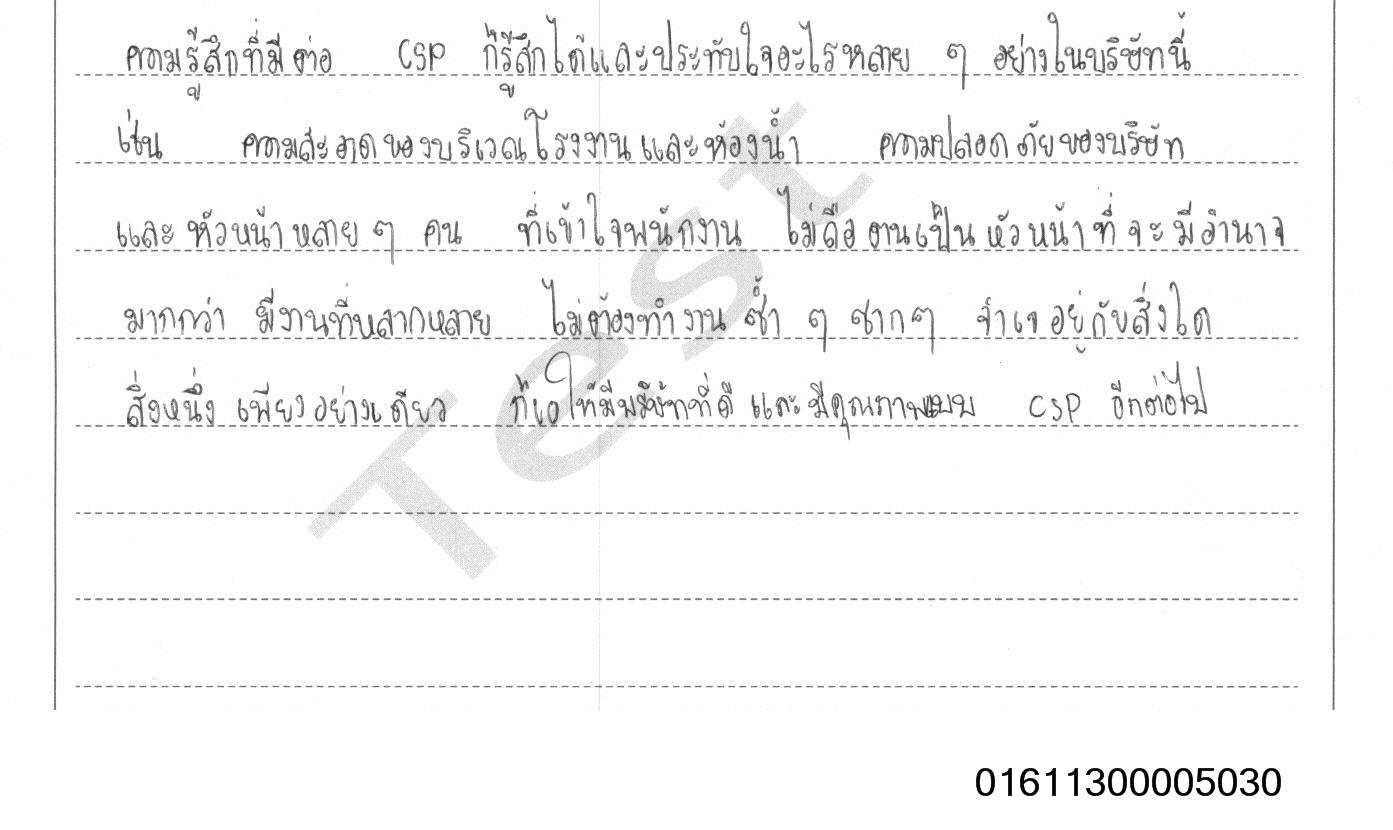 ความรู้สึกที่มีต่อ CSP ก็รู้สึกได้และประทับใจอะไรหลาย ๆ อย่างในบริษัทนี้
เช่น ความสะอาดของบริเวณโรงงานและห้องน้ำ ความปลอดภัยของบริษัท
และหัวหน้าหลาย ๆ คน ที่เข้าใจพนักงาน ไม่ถือตนเป็นหัวหน้าที่จะมีอำนาจ
มากกว่า มีงานที่หลากหลาย ไม่ต้องทำงานซ้ำ ๆ ซากๆ จำเจอยู่กับสิ่งใด
สิ่งหนึ่งเพียงอย่างเดียว ก็ขอให้มีบริษัทที่ดีและมีคุณภาพแบบ CSP อีกต่อไป
Test
01611300005030